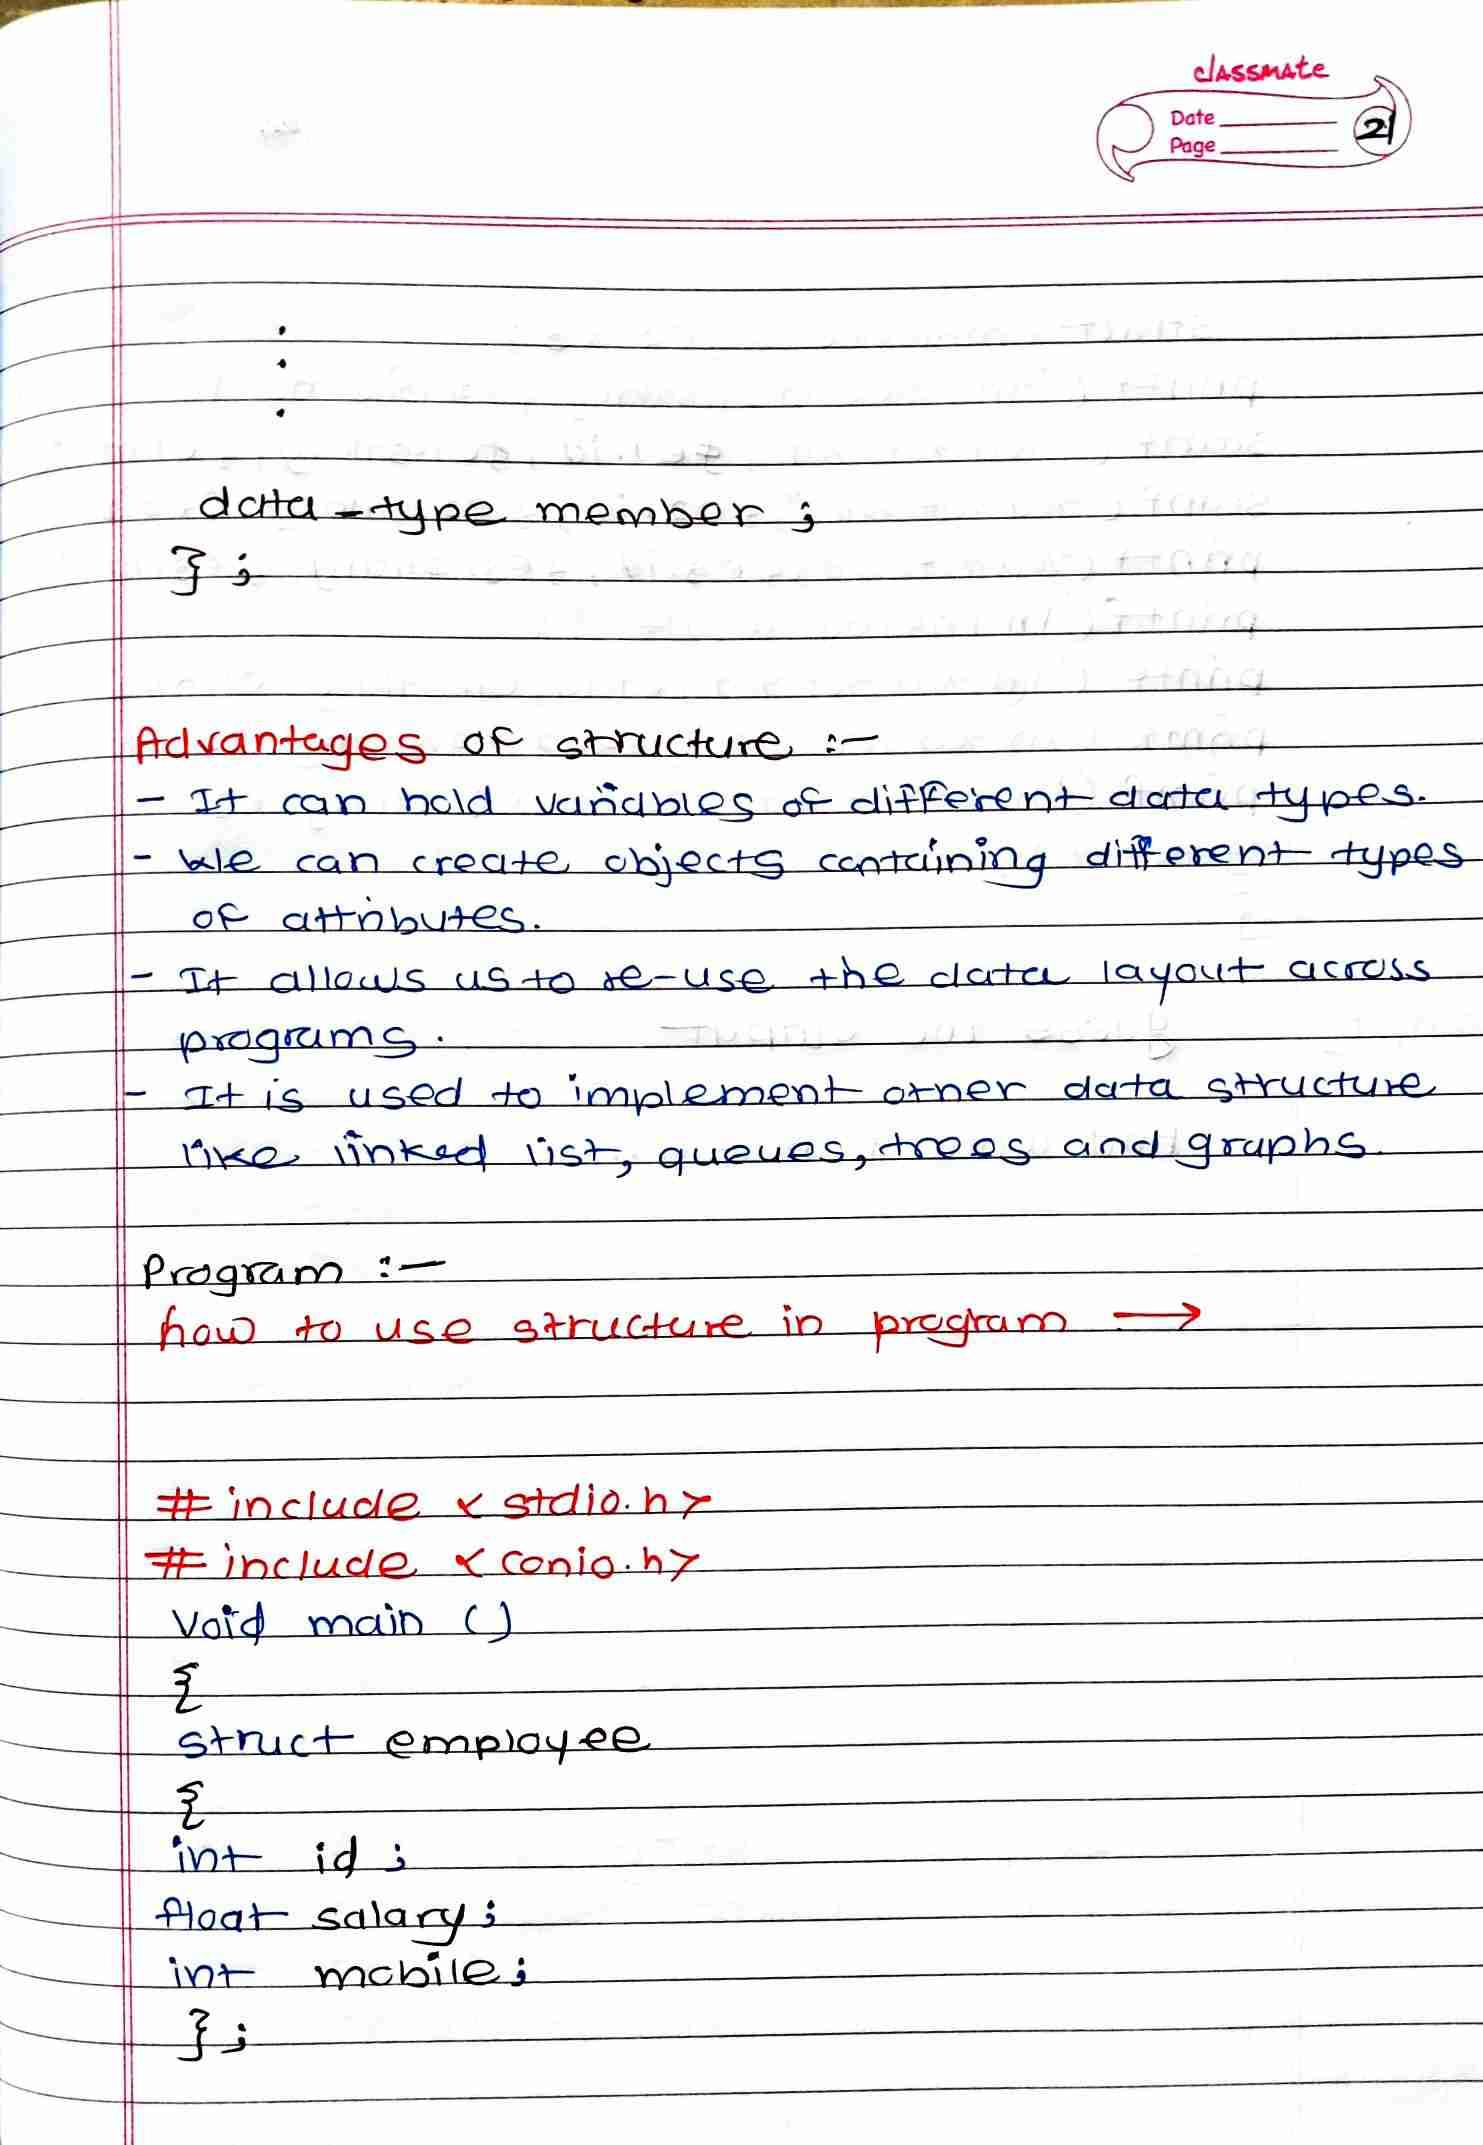 classmate
Date
Page
21
.
.
.
data-type member ;
} ;
Advantages of structure :-
- It can hold variables of different data types.
- We can create objects containing different types
of attributes.
- It allows us to re-use the data layout across
programs.
- It is used to implement other data structure
like linked list, queues, trees and graphs.
Program :-
how to use structure in program →
# include < stdio.h>
# include < conio.h>
void main ()
{
struct employee
{
int id ;
float salary ;
int mobile ;
} ;